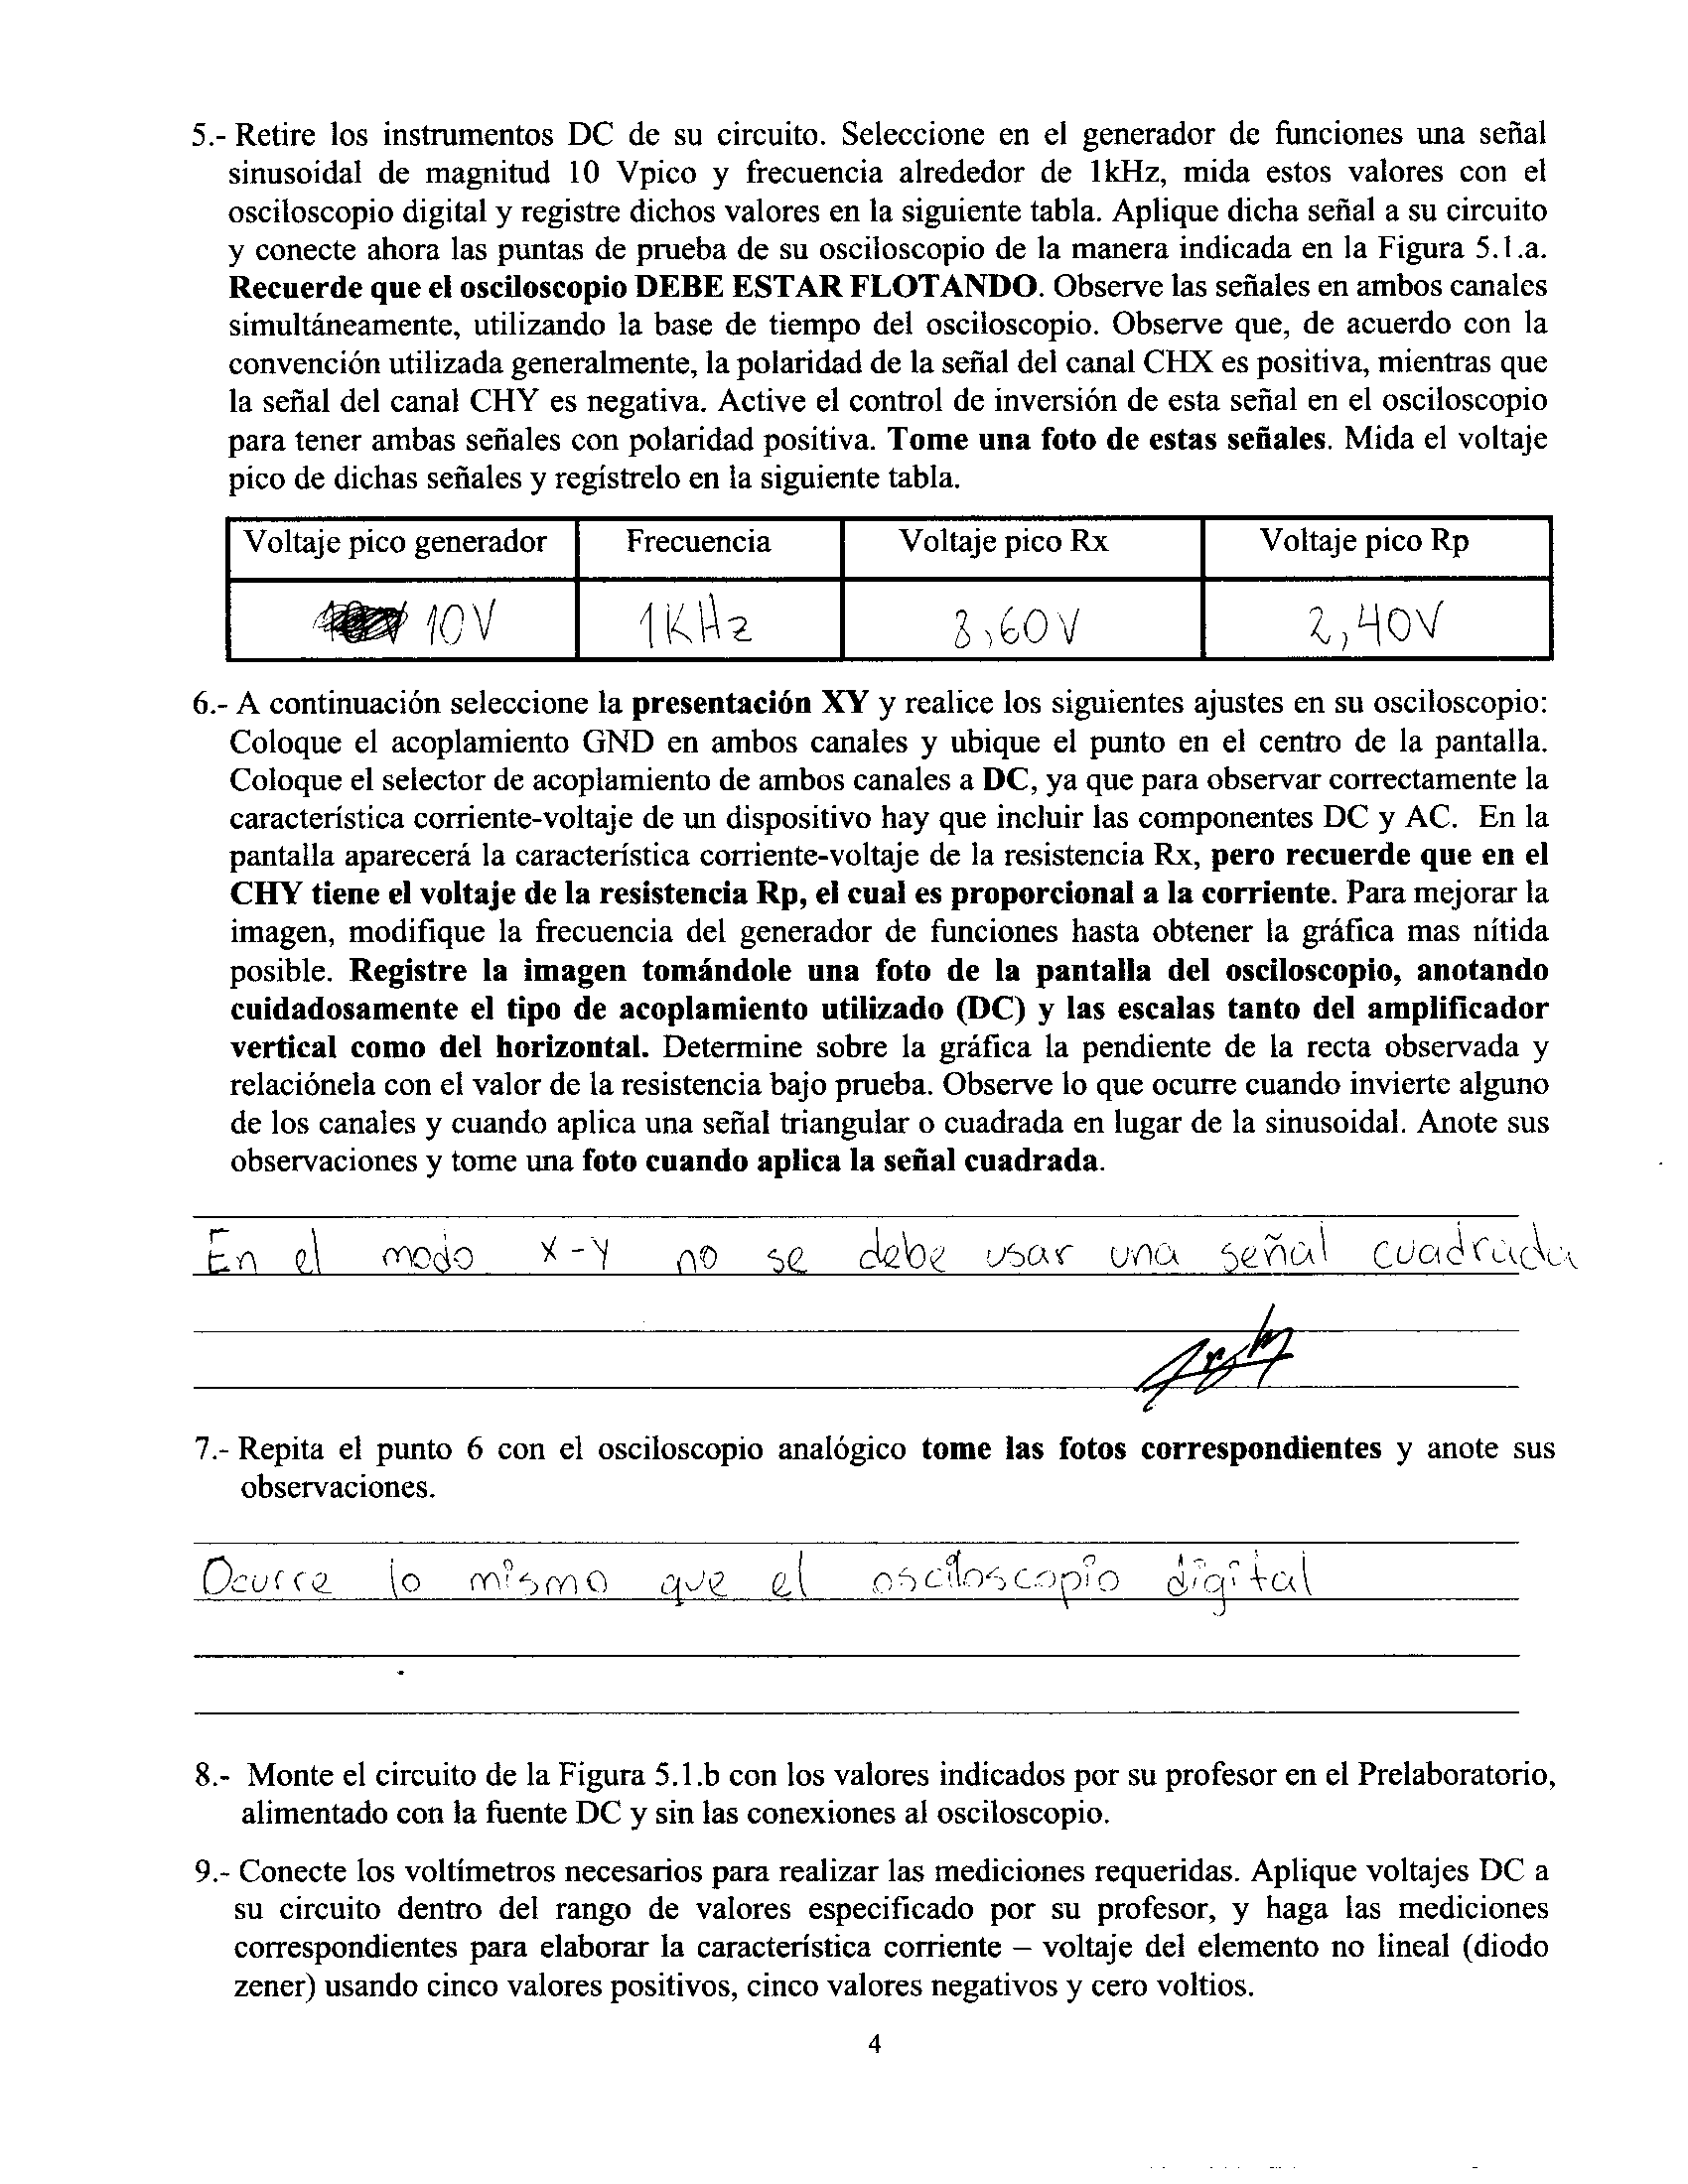 5.- Retire los instrumentos DC de su circuito. Seleccione en el generador de funciones una señal
sinusoidal de magnitud 10 Vpico y frecuencia alrededor de 1kHz, mida estos valores con el
osciloscopio digital y registre dichos valores en la siguiente tabla. Aplique dicha señal a su circuito
y conecte ahora las puntas de prueba de su osciloscopio de la manera indicada en la Figura 5.1.a.
Recuerde que el osciloscopio DEBE ESTAR FLOTANDO. Observe las señales en ambos canales
simultáneamente, utilizando la base de tiempo del osciloscopio. Observe que, de acuerdo con la
convención utilizada generalmente, la polaridad de la señal del canal CHX es positiva, mientras que
la señal del canal CHY es negativa. Active el control de inversión de esta señal en el osciloscopio
para tener ambas señales con polaridad positiva. Tome una foto de estas señales. Mida el voltaje
pico de dichas señales y regístrelo en la siguiente tabla.
Voltaje pico generador Frecuencia Voltaje pico Rx Voltaje pico Rp
10V 1KHz 8,60V 2,40V
6.- A continuación seleccione la presentación XY y realice los siguientes ajustes en su osciloscopio:
Coloque el acoplamiento GND en ambos canales y ubique el punto en el centro de la pantalla.
Coloque el selector de acoplamiento de ambos canales a DC, ya que para observar correctamente la
característica corriente-voltaje de un dispositivo hay que incluir las componentes DC y AC. En la
pantalla aparecerá la característica corriente-voltaje de la resistencia Rx, pero recuerde que en el
CHY tiene el voltaje de la resistencia Rp, el cual es proporcional a la corriente. Para mejorar la
imagen, modifique la frecuencia del generador de funciones hasta obtener la gráfica mas nítida
posible. Registre la imagen tomándole una foto de la pantalla del osciloscopio, anotando
cuidadosamente el tipo de acoplamiento utilizado (DC) y las escalas tanto del amplificador
vertical como del horizontal. Determine sobre la gráfica la pendiente de la recta observada y
relaciónela con el valor de la resistencia bajo prueba. Observe lo que ocurre cuando invierte alguno
de los canales y cuando aplica una señal triangular o cuadrada en lugar de la sinusoidal. Anote sus
observaciones y tome una foto cuando aplica la señal cuadrada.
En el modo X-Y no se debe usar una señal cuadrada
7.- Repita el punto 6 con el osciloscopio analógico tome las fotos correspondientes y anote sus
observaciones.
Ocurre lo mismo que el osciloscopio digital
8.- Monte el circuito de la Figura 5.1.b con los valores indicados por su profesor en el Prelaboratorio,
alimentado con la fuente DC y sin las conexiones al osciloscopio.
9.- Conecte los voltímetros necesarios para realizar las mediciones requeridas. Aplique voltajes DC a
su circuito dentro del rango de valores especificado por su profesor, y haga las mediciones
correspondientes para elaborar la característica corriente – voltaje del elemento no lineal (diodo
zener) usando cinco valores positivos, cinco valores negativos y cero voltios.
4